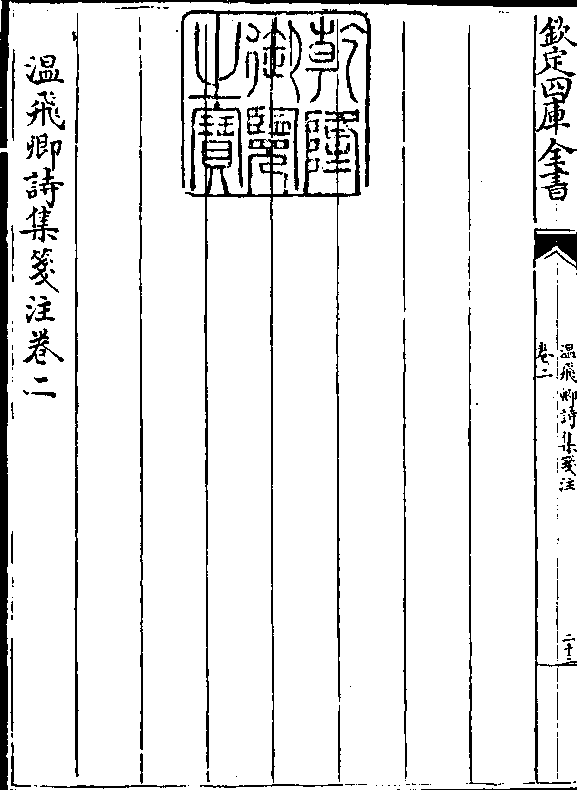 欽定四庫全書
温飛卿詩集箋注
卷二
二十二
乾隆
御覽
之寶
温飛卿詩集箋注卷二